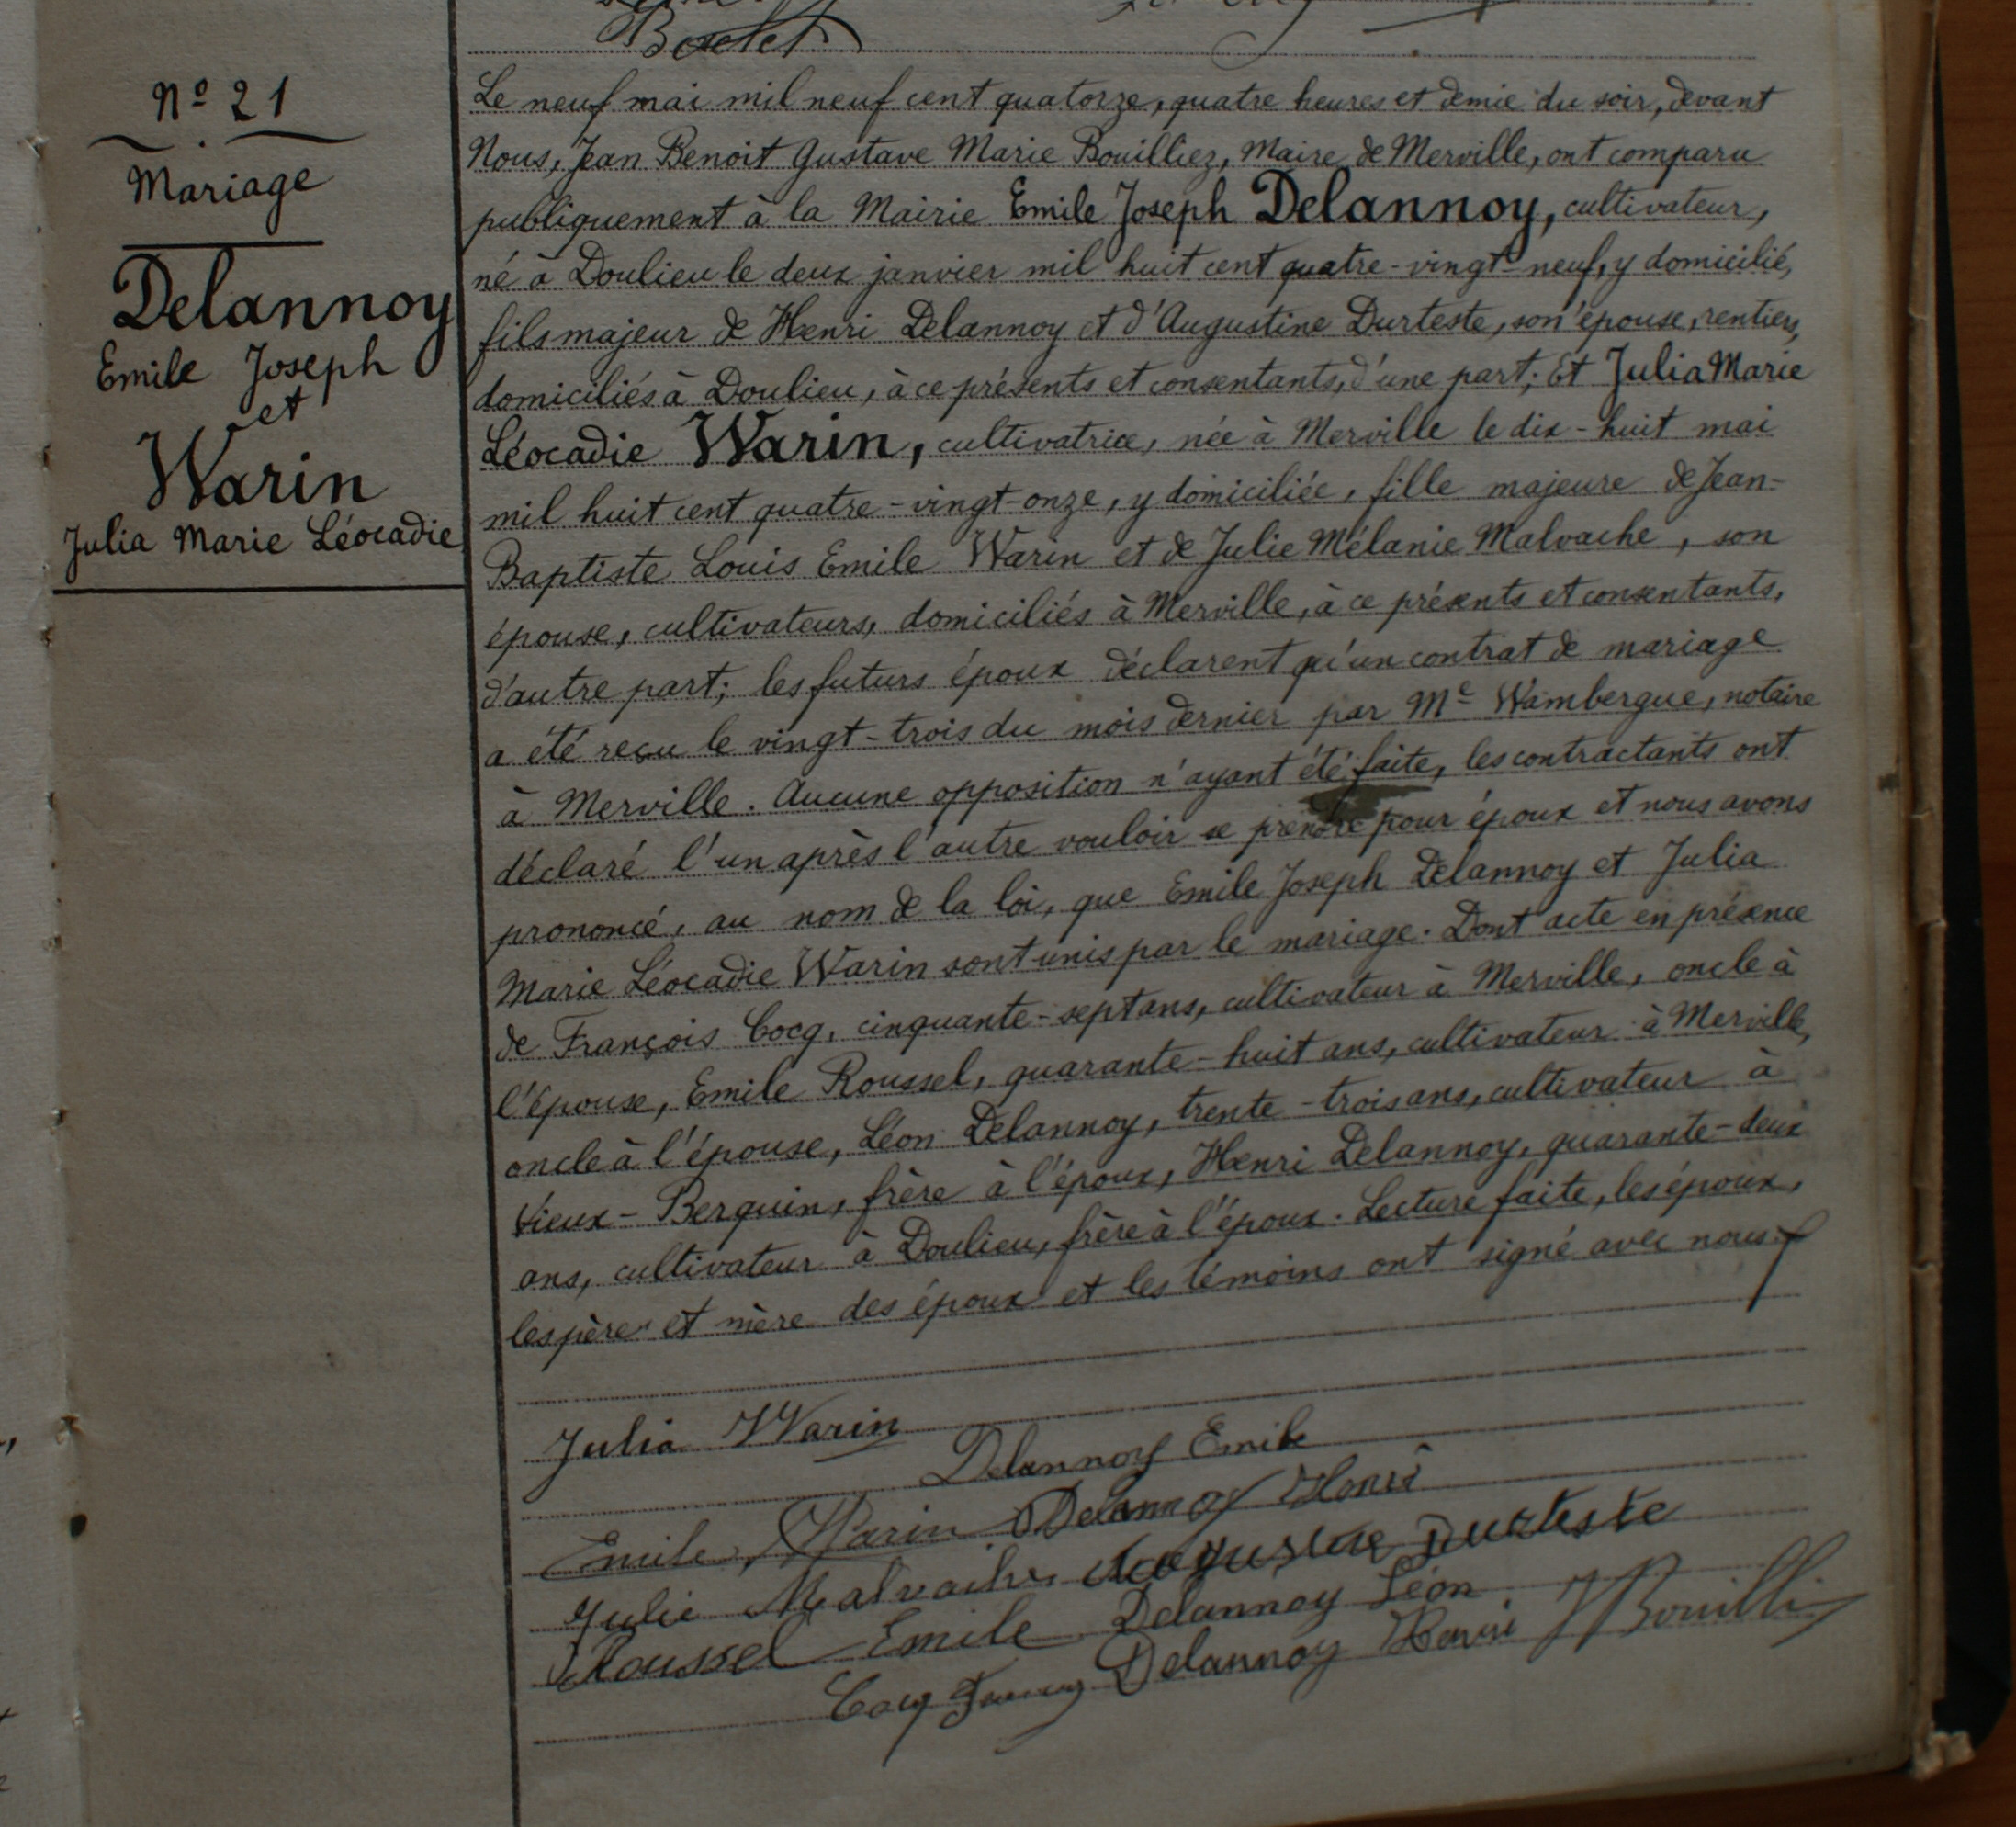 Boclet
Nº 21
Mariage
Delannoy
Emile Joseph
et
Warin
Julia Marie Léocadie
Le neuf mai mil neuf cent quatorze, quatre heures et demie du soir, devant
Nous, Jean Benoit Gustave Marie Bouilliez, Maire de Merville, ont comparu
publiquement à la Mairie Emile Joseph Delannoy, cultivateur,
né à Doulieu le deux janvier mil huit cent quatre-vingt-neuf, y domicilié,
fils majeur de Henri Delannoy et d'Augustine Durteste, son épouse, rentiers,
domiciliés à Doulieu, à ce présents et consentants, d'une part; Et Julia Marie
Léocadie Warin, cultivatrice, née à Merville le dix-huit mai
mil huit cent quatre-vingt-onze, y domiciliée, fille majeure de Jean-
Baptiste Louis Emile Warin et de Julie Mélanie Malvache, son
épouse, cultivateurs, domiciliés à Merville, à ce présents et consentants,
d'autre part; les futurs époux déclarent qu'un contrat de mariage
a été reçu le vingt-trois du mois dernier par Me Wambergue, notaire
à Merville. Aucune opposition n'ayant été faite, les contractants ont
déclaré l'un après l'autre vouloir se prendre pour époux et nous avons
prononcé, au nom de la loi, que Emile Joseph Delannoy et Julia
Marie Léocadie Warin sont unis par le mariage. Dont acte en présence
de François Cocq, cinquante-sept ans, cultivateur à Merville, oncle à
l'épouse, Emile Roussel, quarante-huit ans, cultivateur à Merville,
oncle à l'épouse, Léon Delannoy, trente-trois ans, cultivateur à
Vieux-Berquin, frère à l'époux, Henri Delannoy, quarante-deux
ans, cultivateur à Doulieu, frère à l'époux. Lecture faite, les époux,
les père et mère des époux et les témoins ont signé avec nous.
Julia Warin
Delannoy Emile
Emile Warin Delannoy Henri
Julie Malvache Augustine Durteste
Roussel Emile Delannoy Léon
Cocq Delannoy Henri JBouilli